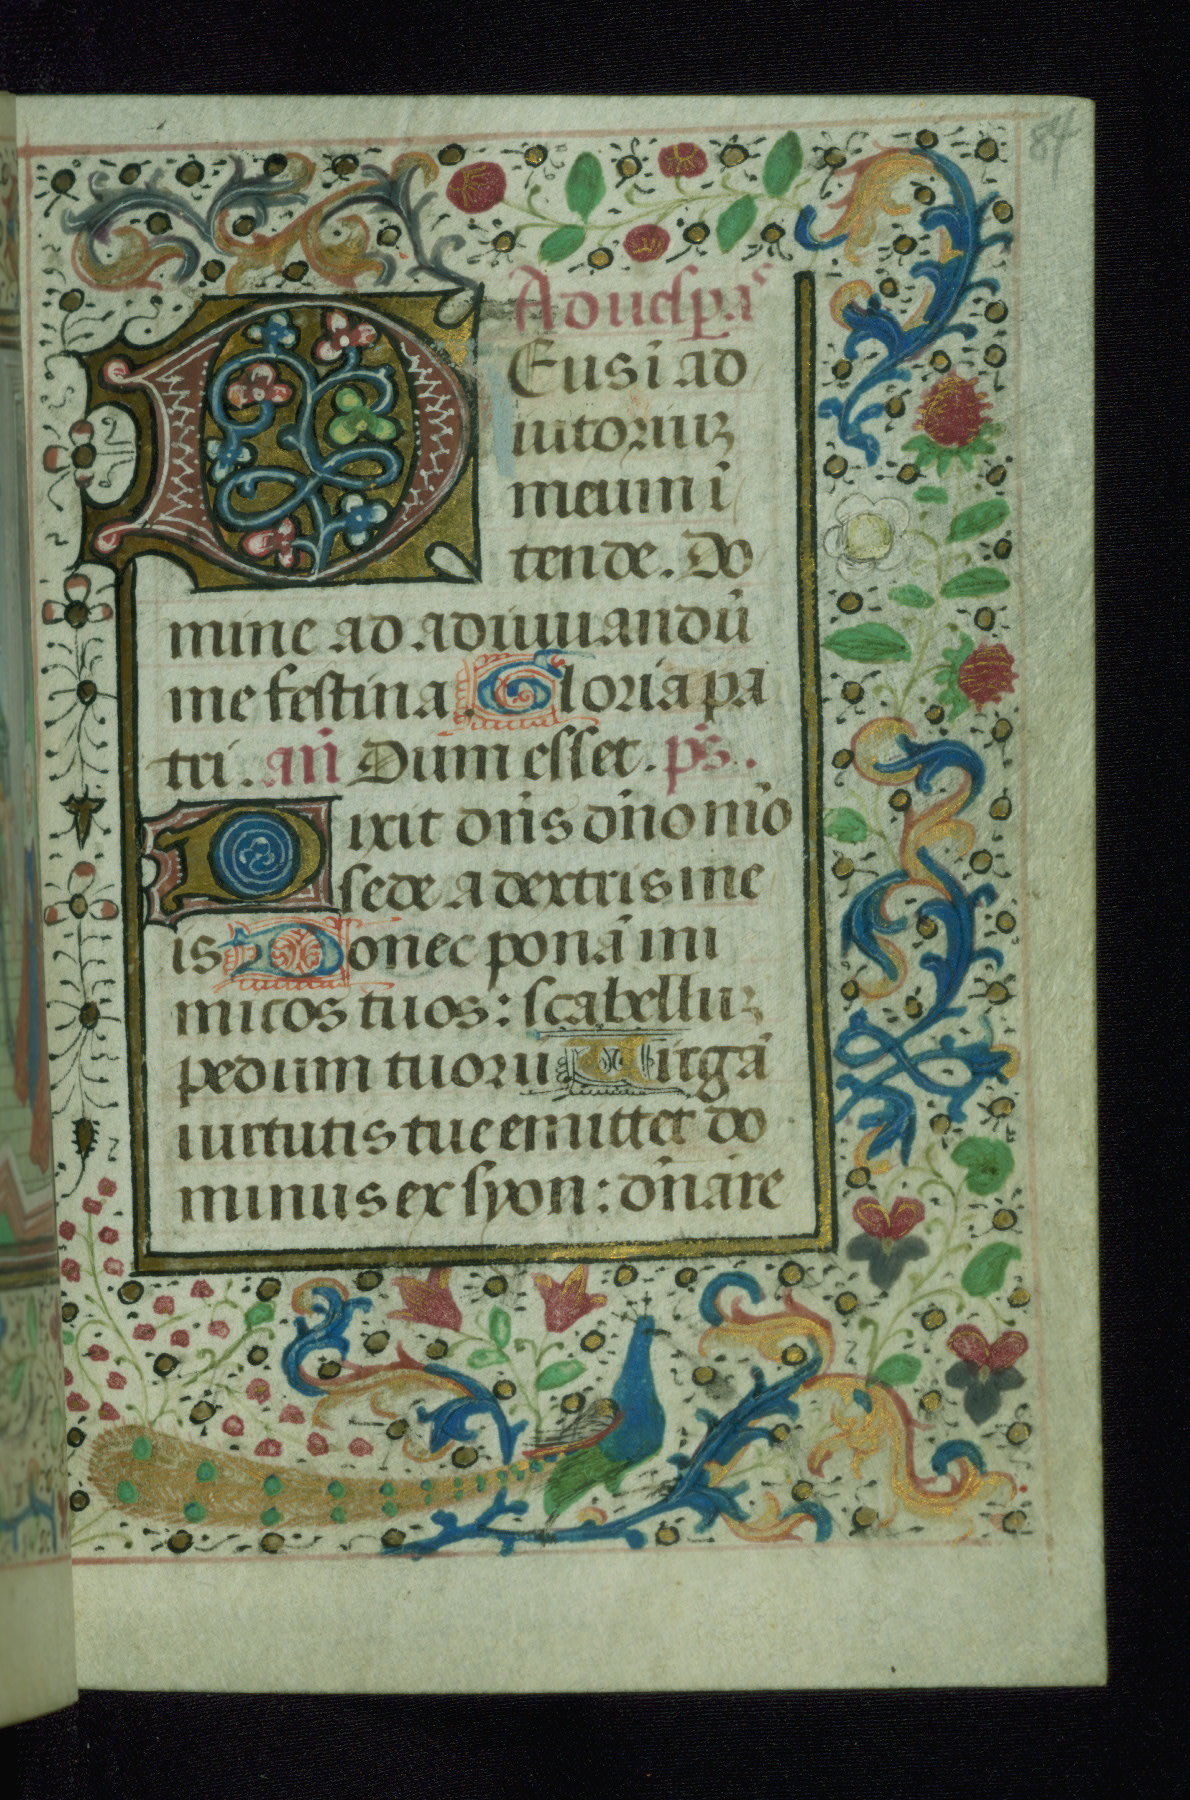 84
Ad uesp̱as
DEus ī ad
iutoriuꝫ
meum ī
tende. Do
mine ad adiuuandū
me festina. Gloria pa
tri. añ Dum esset. ps̄.
Dixit dn̄s dn̄o mō
sede a dextris me
is Donec ponā ini
micos tuos: scabelluꝫ
pedum tuoru. Uirgā
uirtutis tue emittet do
minus ex syon: dn̄are